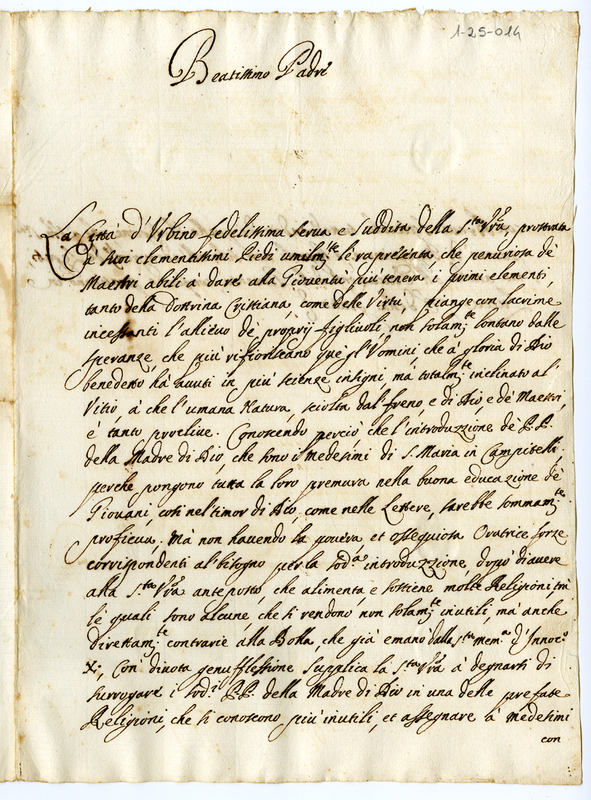 1-25-014
Beatissimo Padre
La Città d'Vrbino fedelissima serua e Suddita della S.ta Vr̃a, prostrata
à Suoi clementissimi Piedi umilm.te le rap̃resenta, che penuriosa de
Maestri abili à dare alla Giouentù più tenera i primi elementi,
tanto della Dottrina Cristiana, come delle Virtù, piange con lacrime
incessanti l'alleuo de proprij figliuoli, non solam.te lontano dalle
speranze che più rifioriscano que gl'Vomini che à gloria di Dio
benedetto hà auuti in più scienze insigni, mà totalm.te inclinato al
Vitio, à che l'umana Natura, sciolta dal freno, e di Dio, e de Maestri,
è tanto procliue. Conoscendo perciò che l'introduzzione de P.P.
della Madre di Dio, che sono i medesimi di S. Maria in Campitelli
perche pongono tutta la loro premura nella buona educazione de
Giouani, così nel timor di Dio, come nelle Lettere, sarebbe sommam.te
proficua; Mà non hauendo la pouera et ossequiosa Oratrice forze
corrispondenti al bisogno per la sod.a introduzzione, dopò d'auere
alla S.ta Vr̃a anteposto, che alimenta, e sostiene molte Religioni, trà
le quali sono alcune, che si rendono non solam.te inutili, mà anche
direttam.te contrarie alla Bolla, che già emanò dalla S.ta mem.a d'Innoc.o
X; Con diuota genuflessione Supplica la S.ta Vr̃a à degnarsi di
surrogare i sod.i P.P. della Madre di Dio in una delle prefate
Religioni, che si conoscono più inutili, et assegnare à medesimi
con